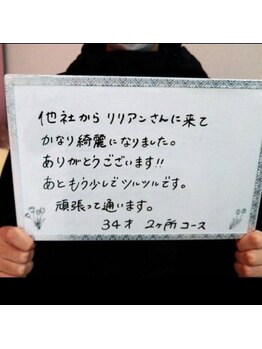 他社から リリアンさんに来て
かなり綺麗になりました。
ありがとうございます!!
あともう少しでツルツルです。
頑張って通います。
34才 2ヶ所コース